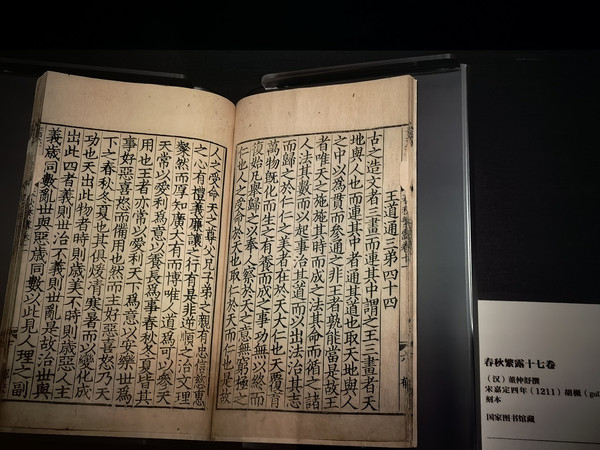 王道通三第四十四
古之造文者三畫而連其中謂之王三畫者天
地與人也而連其中者通其道也取天地與人
之中以為貫而參通之非王者孰能當是故王
者唯天之施施其時而成之法其命而循之諸
人法其數而以起事治其道而以出法治其志
而歸之於仁仁之美者在於天天仁也天覆育
萬物既化而生之有養而成之事功無以終而
復始凡舉歸之以奉人察於天之意無窮極之
仁也人之受命於天也取仁於天而仁也是故
人之受命天之尊父兄子弟之親有忠信慈惠
之心有禮義廉讓之行有是非逆順之治文理
粲然而厚知廣大有而博唯人道為可以參天
天常以愛利為意以養長為事春秋冬夏皆其
用也王者亦常以愛利天下為意以安樂世為
事好惡喜怒而備用也然而主好惡喜怒乃天
下之春秋冬夏也其俱煖清寒暑而以變化成
功也天出此物者時則歲美不時則歲惡人主
出此四者義則世治不義則世亂是故治世與
義歲同數亂世與惡歲同數以此見人理之副
春秋繁露十七卷
（汉）董仲舒撰
宋嘉定四年（1211）胡榘（guī
刻本
国家图书馆藏